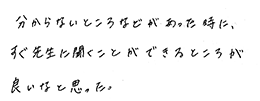 分からないところなどがあった時に、
すぐ先生に聞くことができるところが
良いなと思った。